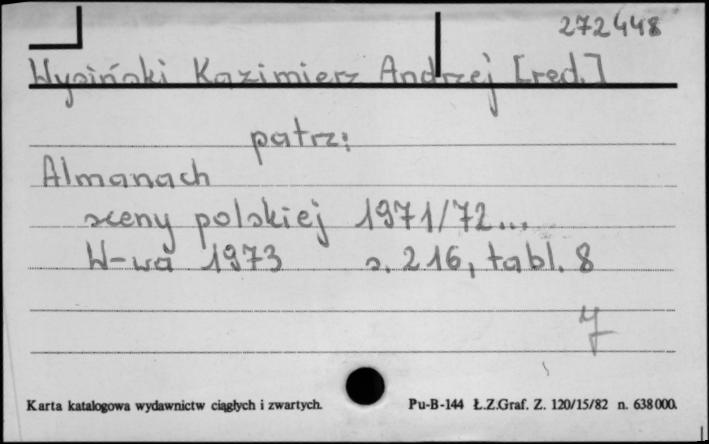 272448
Wysiński Kazimierz Andrzej [red.]
patrz:
Almanach
sceny polskiej 1971/72...
W-wa 1973 s. 216, tabl. 8
Karta katalogowa wydawnictw ciągłych i zwartych. Pu-B-144 Ł.Z.Graf. Z. 120/15/82 n. 638000.